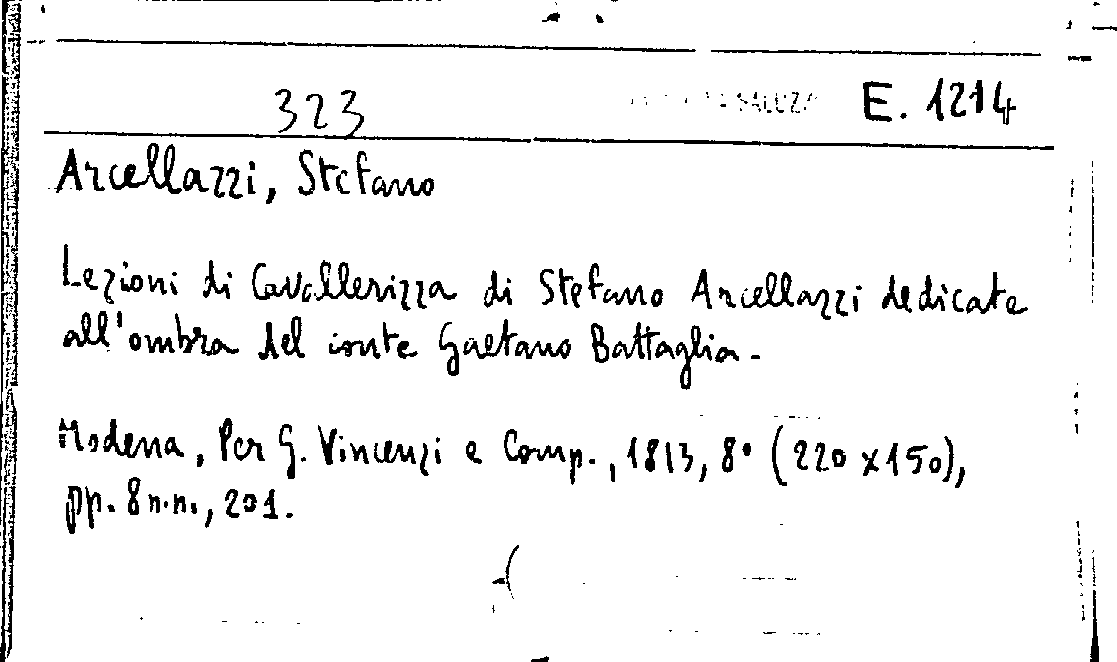 323 SALUZ E. 1214
Arcellazzi, Stefano
Lezioni di Cavallerizza di Stefano Arcellazzi dedicate
all'ombra del conte Gaetano Battaglia.
Modena, Per G. Vincenzi e Comp., 1813, 8° (220 x 150),
pp. 8 n.n., 201.